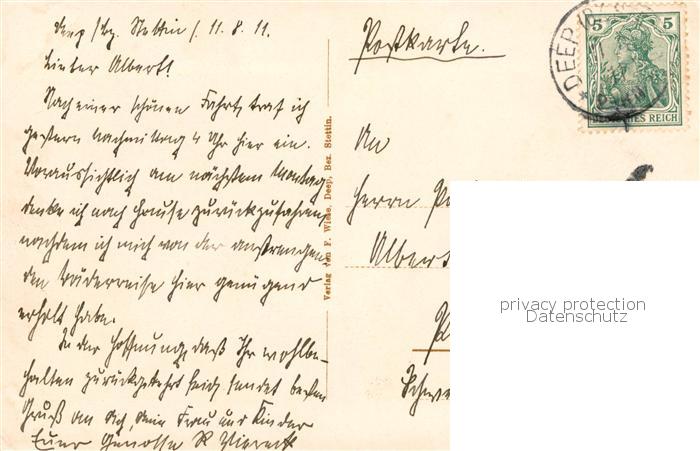 Deep /Bz. Stettin /. 11. 8. 11.
Lieber Albert!
Nach einer schönen Fahrt, traf ich
gestern nachmittag 4 Uhr hier ein.
Voraussichtlich am nächsten Montag
denke ich nach Hause zurückzufahren,
nachdem ich mich von der anstrengen-
den Bäderreise hier genügend
erholt habe.
In der Hoffnung, daß Ihr wohlbe-
halten zurückgekehrt seid, sendet besten
Gruß an dich, deine Frau und Kinder
Euer Genosse R
Verlag von F. Wiese, Deep, Bez. Stettin.
Postkarte.
An
Herrn
Albert
Schwe
DEEP
5 5
DEUTSCHES REICH
privacy protection
Datenschutz